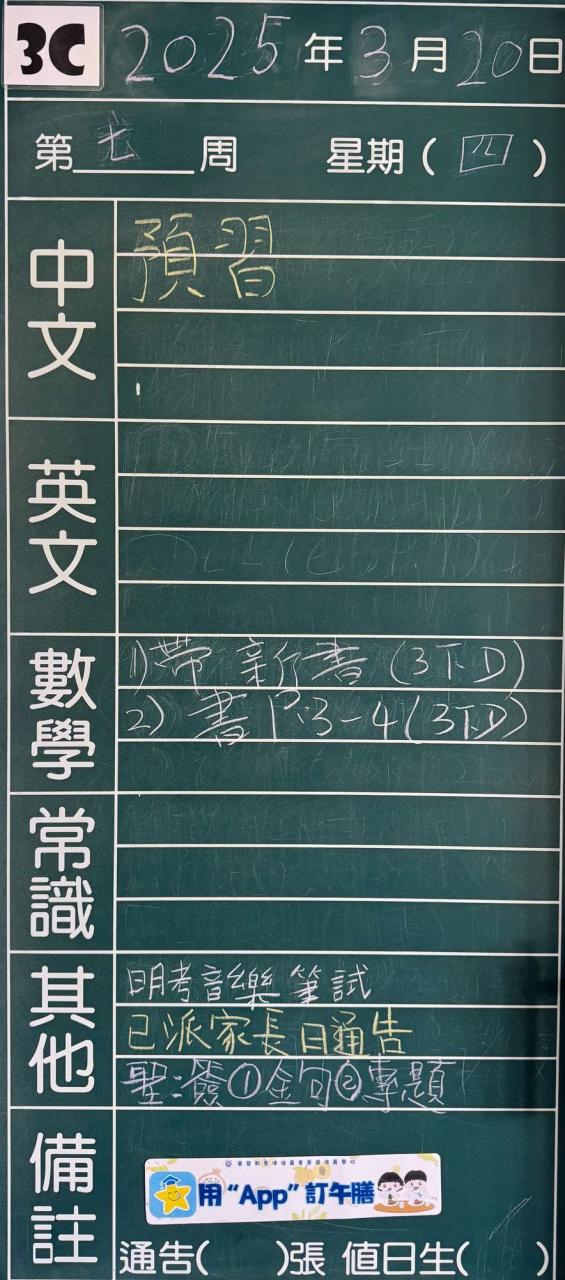 3C 2025年3月20日
第 周 星期(四)
中文 預習
英文
數學 1)帶新書(3下D)
2)書P.3-4(3下D)
常識
其他 明考音樂筆試
已派家長日通告
聖:簽①金句②專題
備註
用“App”訂午膳
通告( )張 值日生( )